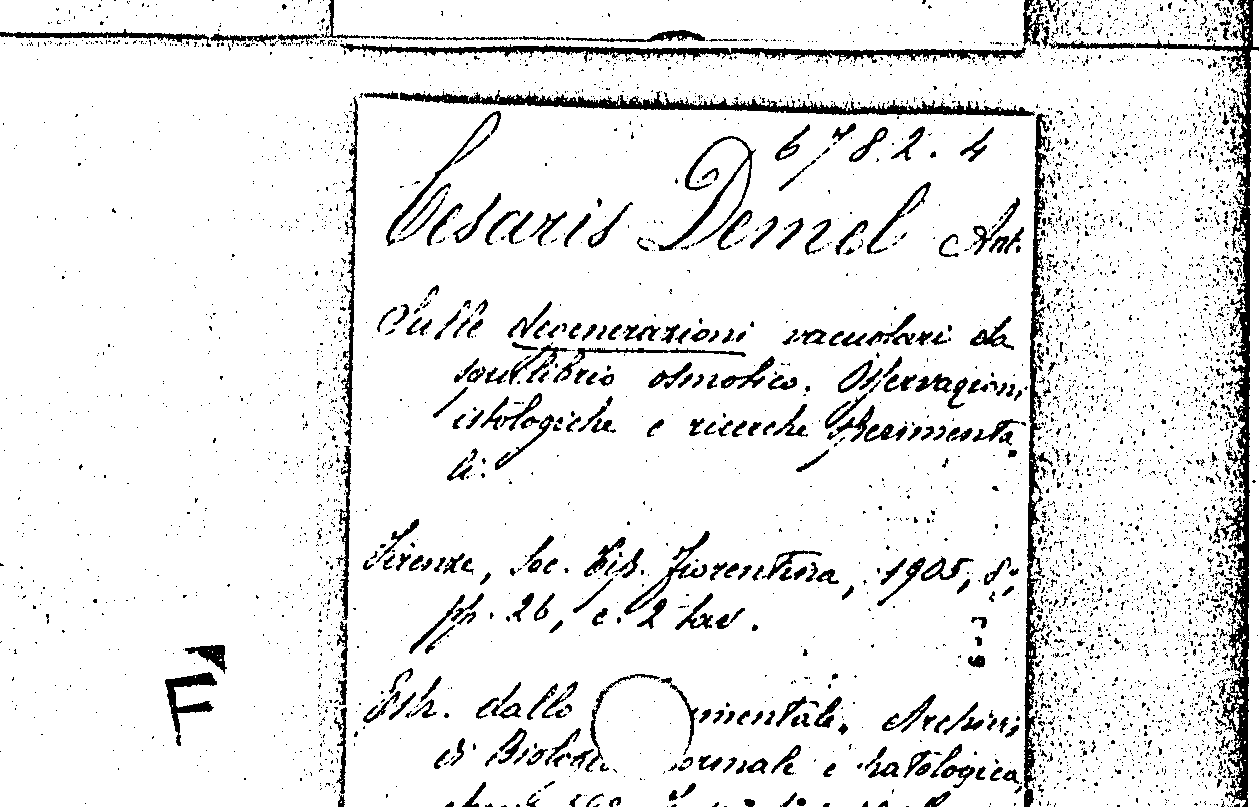 6782.4
Cesaris Demel Ant.
Sulle degenerazioni vacuolari da
squilibrio osmotico. Osservazioni
istologiche e ricerche sperimenta
li.
Firenze, Soc. Tip. Fiorentina, 1905, 8°,
pp. 26, c. 2 tav.
Estr. dallo mentale, Archivi
di Biologia normale e patologica,
F